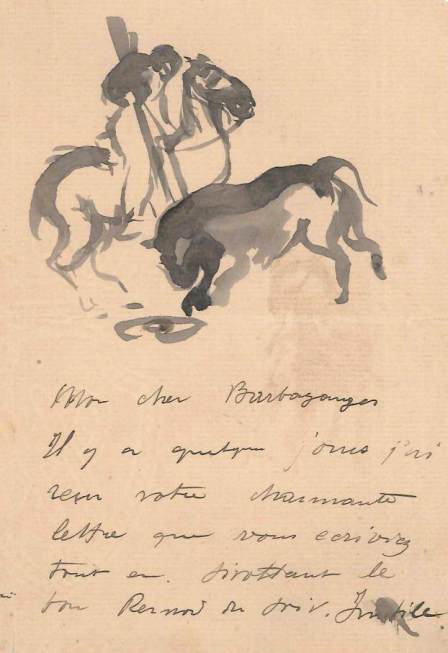 Mon cher Barbazanges
Il y a quelque jours j'ai
reçu votre charmante
lettre que vous ecriviez
tout en sirottant le
bon Pernod du soir. Inutile